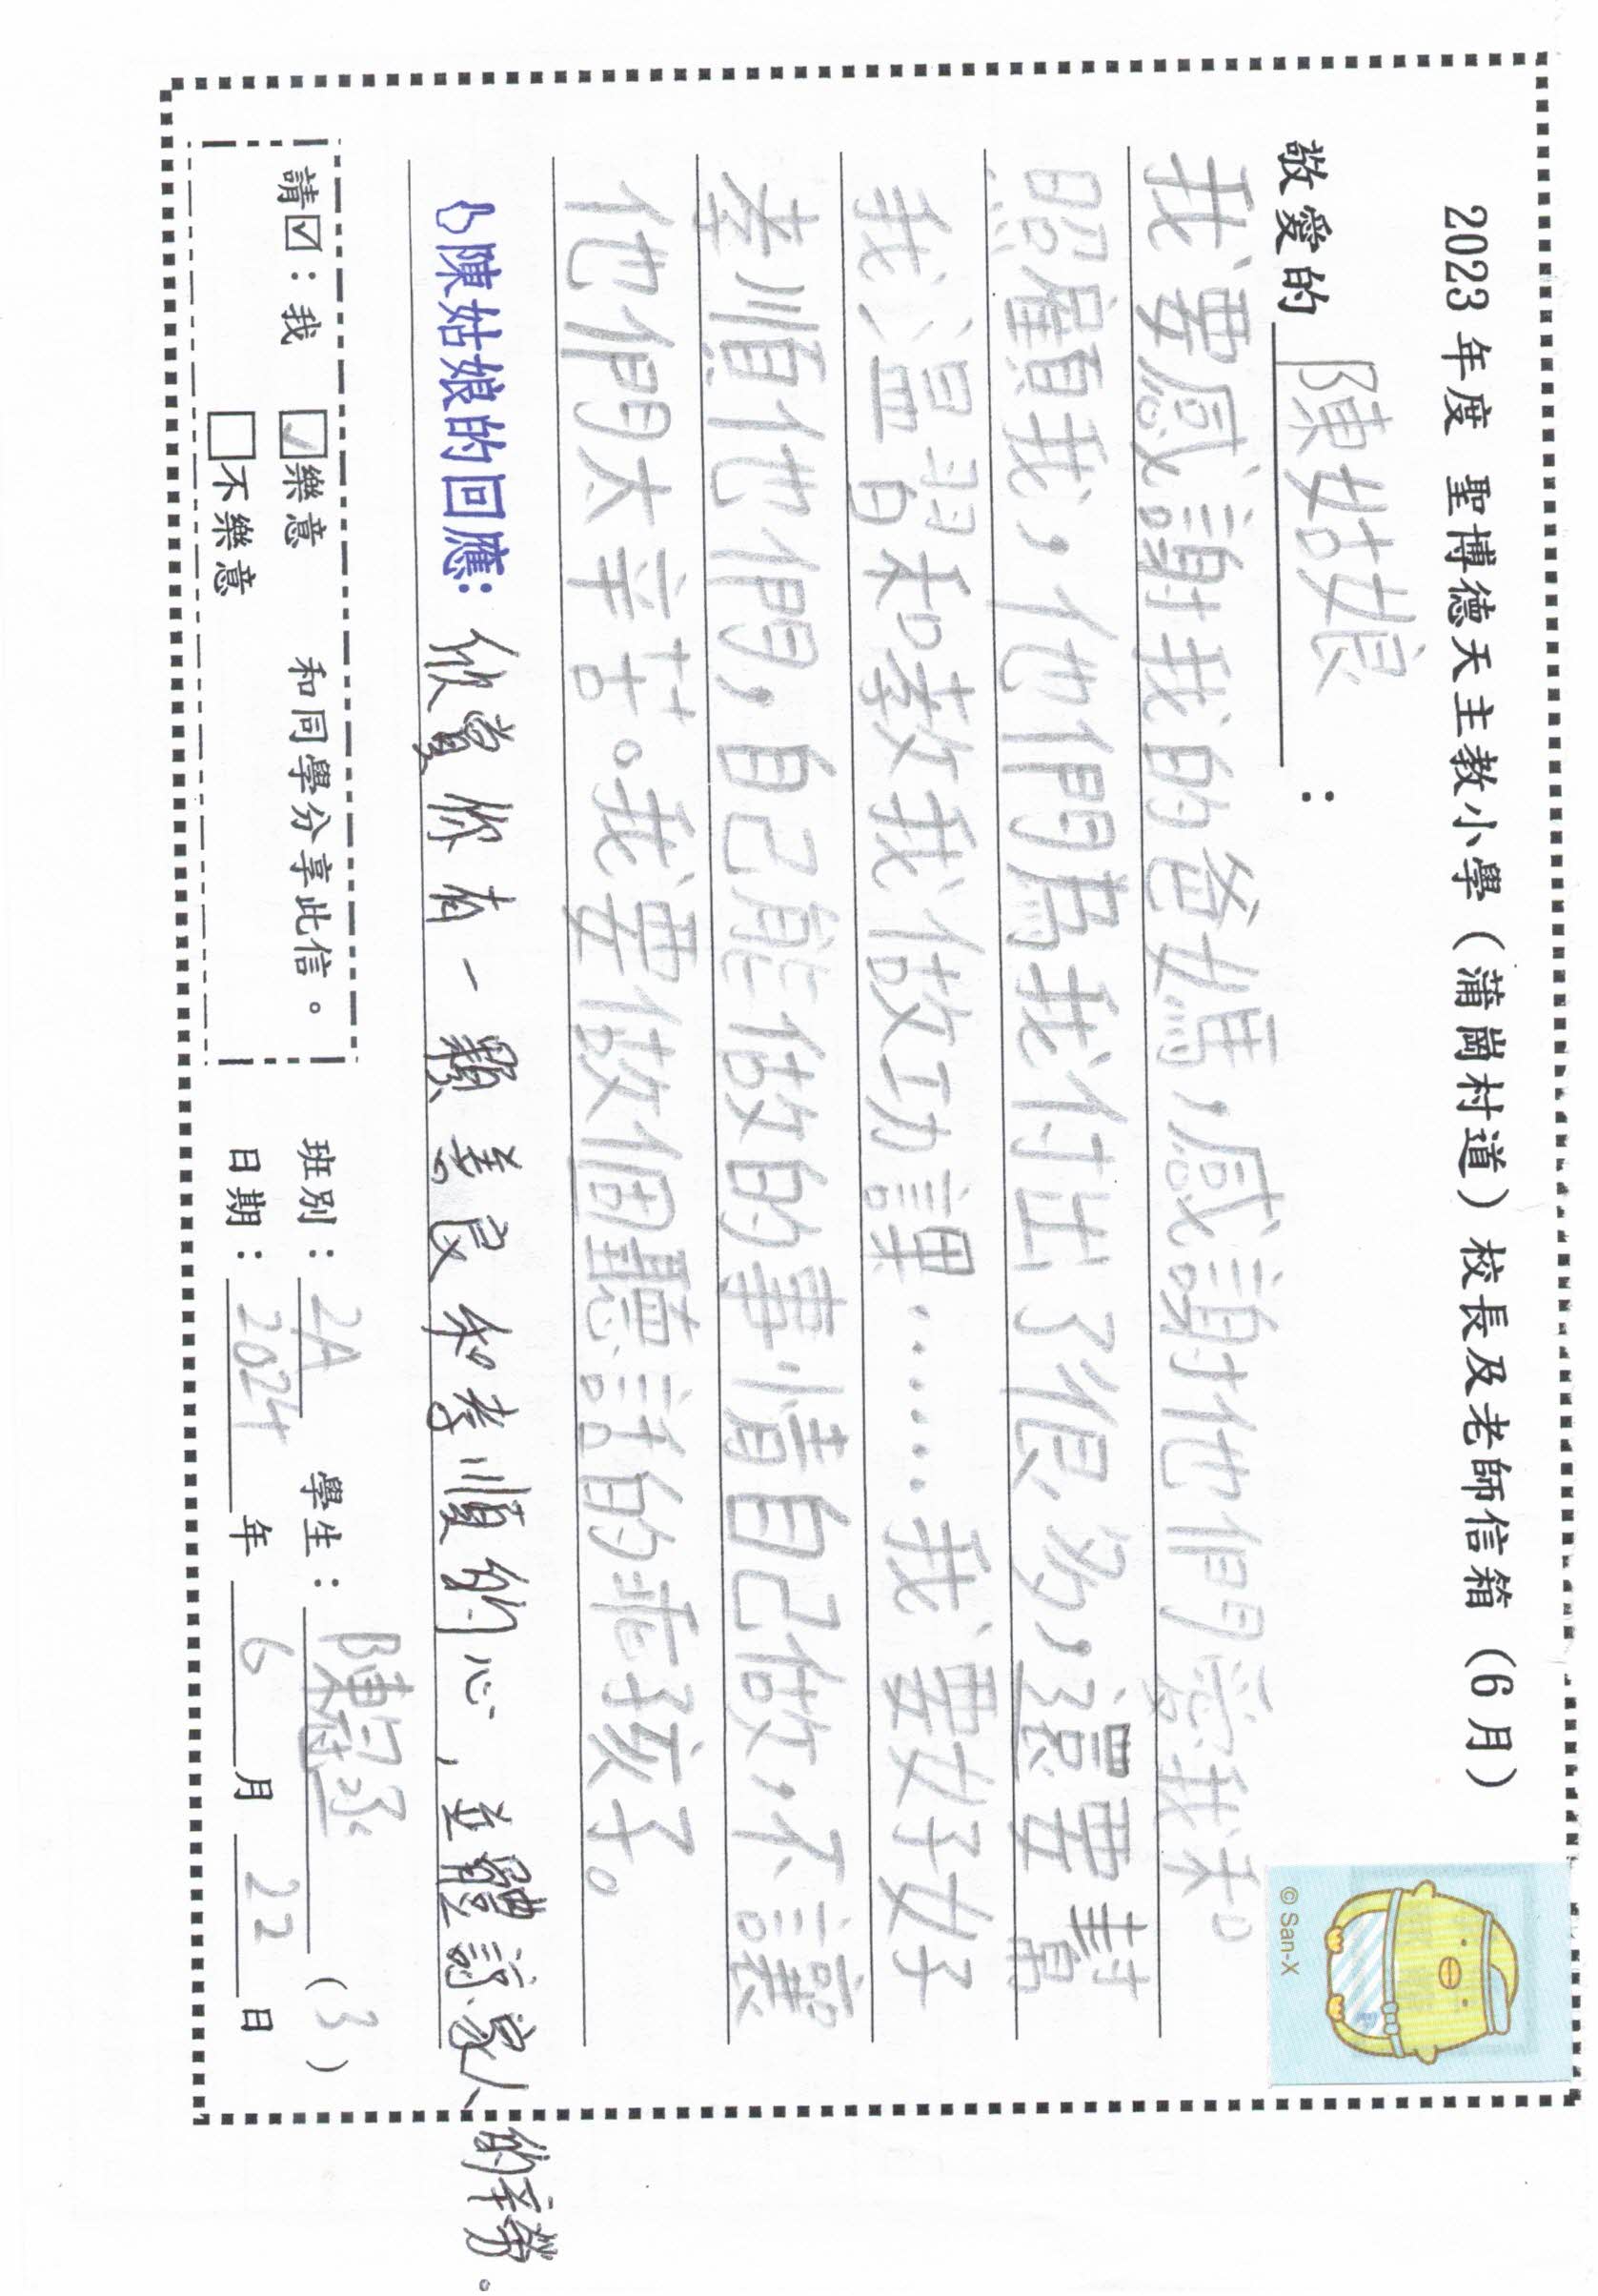 2023 年度 聖博德天主教小學（蒲崗村道）校長及老師信箱（6 月）
敬愛的 陳姑娘 ：
我要感謝我的爸媽，感謝他們愛我和
照顧我，他們為我付出了很多，還要幫
我溫習和教我做功課……我要好好
孝順他們，自己能做的事情自己做，不讓
他們太辛苦。我要做個聽話的乖孩子。
陳姑娘的回應: 欣賞你有一顆善良和孝順的心，並體諒家人的辛勞。
請☑：我 ☑樂意 和同學分享此信。
□不樂意
班別：2A 學生：陳 (3)
日期：2024 年 6 月 22 日
© San-X